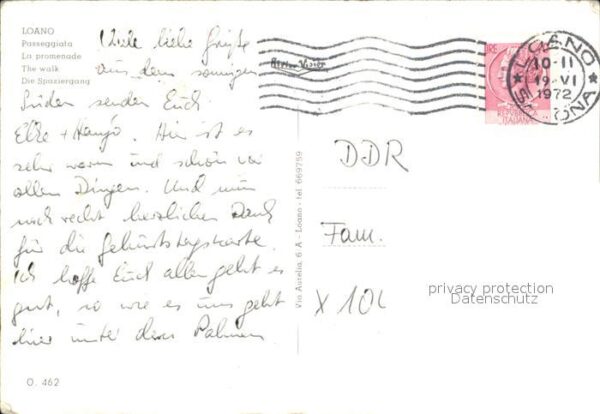 LOANO
Passeggiata
La promenade
The walk
Die Spaziergang
Viele liebe Grüße
aus dem sonnigen
Süden senden Euch
Elke + Hansjo. Hier ist es
sehr warm und schön vor
allen Dingen. Und nun
noch recht herzlichen Dank
für die Geburtstagskarte.
Ich hoffe Euch allen geht es
gut, so wie es uns geht
hier unter den Palmen
O. 462
Via Aurelia, 6 A - Loano - tel 669759
LOANO
10-11
19-VI
1972
SAVONA
IRE
REPVBBLICA
ITALIANA
DDR
Fam.
X 102
privacy protection
Datenschutz